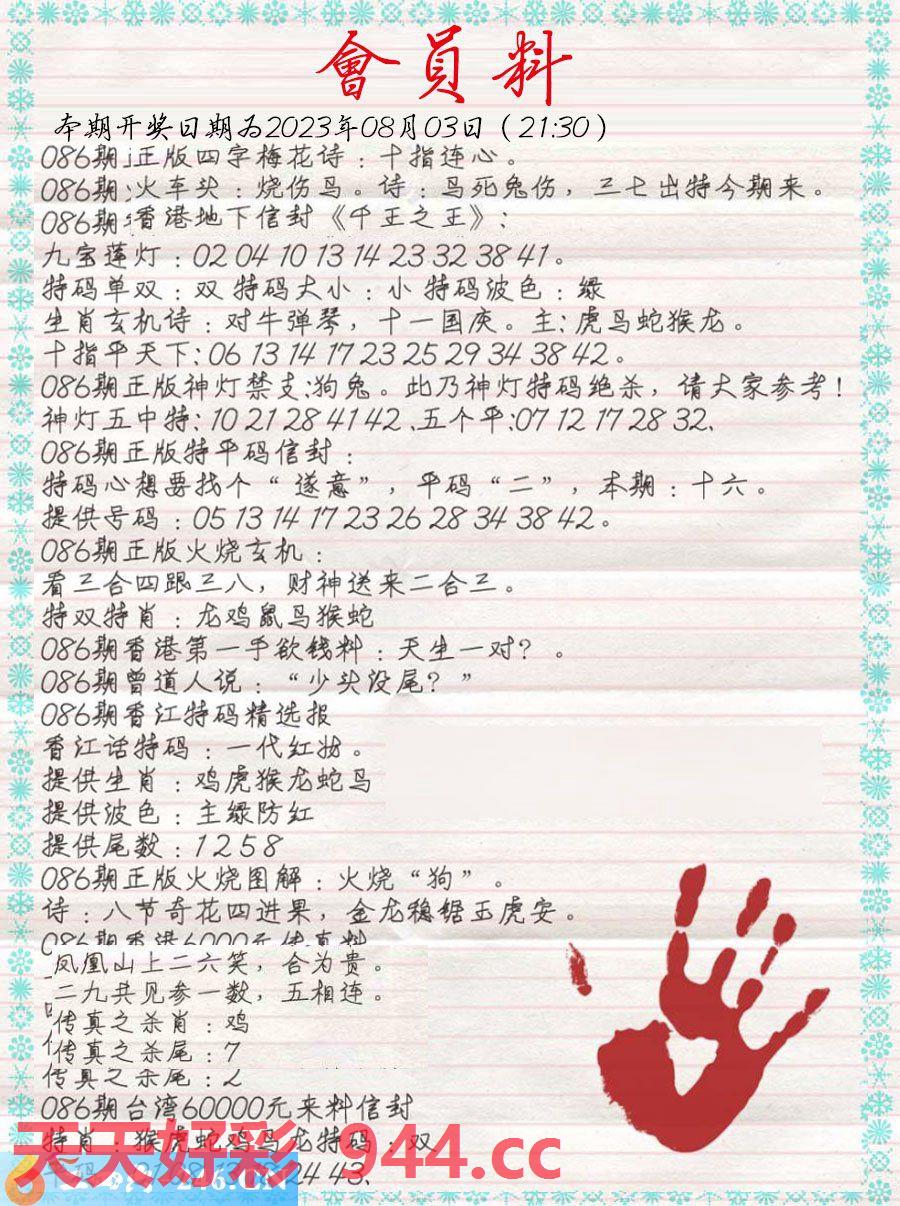 會員料
本期开奖日期为2023年08月03日（21:30）
086期正版四字梅花诗：十指连心。
086期:火车头：烧伤鸟。诗：鸟死兔伤，三七出特今期来。
086期香港地下信封《千王之王》:
九宝莲灯：02 04 10 13 14 23 32 38 41。
特码单双：双 特码大小：小 特码波色：绿
生肖玄机诗：对牛弹琴，十一国庆。主:虎马蛇猴龙。
十指平天下:06 13 14 17 23 25 29 34 38 42。
086期正版神灯禁支:狗兔。此乃神灯特码绝杀，请大家参考！
神灯五中特:10 21 28 41 42、五个平:07 12 17 28 32、
086期正版特平码信封：
特码心想要找个“遂意”，平码“二”，本期：十六。
提供号码：05 13 14 17 23 26 28 34 38 42。
086期正版火烧玄机：
看三合四跟三八，财神送来二合三。
特双特肖：龙鸡鼠马猴蛇
086期香港第一手欲钱料：天生一对？。
086期曾道人说：“少头没尾？”
086期香江特码精选报
香江话特码：一代红妆。
提供生肖：鸡虎猴龙蛇马
提供波色：主绿防红
提供尾数：1 2 5 8
086期正版火烧图解：火烧“狗”。
诗：八节奇花四进果，金龙稳锯玉虎安。
086期香港6000元传真料
凤凰山上二六笑，合为贵。
二九共见参一数，五相连。
传真之杀肖：鸡
传真之杀尾：7
传真之杀尾：2
086期台湾60000元来料信封
特肖：猴虎蛇鸡马龙特码：双
24 43、
天天好彩 944.cc